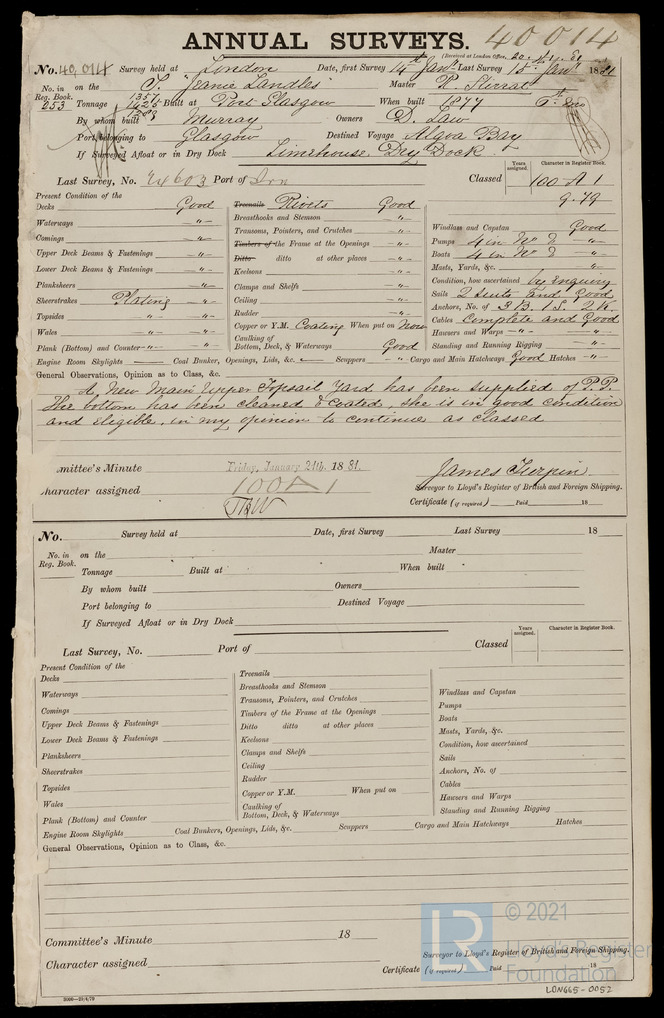 40014
ANNUAL SURVEYS.
(Received at London Office,
No. 40,014 Survey held at London Date, first Survey 14th Jany. Last Survey 15 Jany 1881
No. in Reg. Book. 253 on the S. "Jeanie Landles" Master R. Stirrat
Tonnage 1357 1425 Built at Port Glasgow When built 1877
By whom built Murray Owners D. Law
Port belonging to Glasgow Destined Voyage Algoa Bay
If Surveyed Afloat or in Dry Dock Limehouse Dry Dock.
Last Survey, No. Port of Classed
Years assigned. Character in Register Book.
100 A 1
9.79
Present Condition of the
Decks Good
Waterways -"-
Comings -"-
Upper Deck Beams & Fastenings -"-
Lower Deck Beams & Fastenings -"-
Planksheers -"-
Sheerstrakes Plating -"-
Topsides -"-
Wales -"-
Plank (Bottom) and Counter -"-
Treenails Rivets Good
Breasthooks and Stemson -"-
Transoms, Pointers, and Crutches -"-
Timbers of the Frame at the Openings -"-
Ditto ditto at other places -"-
Keelsons -"-
Clamps and Shelfs -"-
Ceiling -"-
Rudder -"-
Copper or Y.M. Coating When put on Now
Caulking of Bottom, Deck, & Waterways Good
Windlass and Capstan Good
Pumps 4 in No. -"-
Boats 4 in No. -"-
Masts, Yards, &c. -"-
Condition, how ascertained by enquiry
Sails 2 Suits and Good
Anchors, No. of 3 B. 1 S. 2 K.
Cables Complete and Good
Hawsers and Warps -"- -"-
Standing and Running Rigging -"-
Engine Room Skylights Coal Bunker, Openings, Lids, &c. Scuppers -"- Cargo and Main Hatchways Good Hatches -"-
General Observations, Opinion as to Class, &c.
A, New Main Upper Topsail Yard has been supplied of P.P.
The bottom has been cleaned & coated, she is in good condition
and eligible, in my opinion to continue as classed
mmittee's Minute Friday, January 21th. 1881.
haracter assigned 100A1
James Turpin
Surveyor to Lloyd's Register of British and Foreign Shipping.
Certificate (if required) Paid 18
No. Survey held at Date, first Survey Last Survey 18
No. in Reg. Book. on the Master
Tonnage Built at When built
By whom built Owners
Port belonging to Destined Voyage
If Surveyed Afloat or in Dry Dock
Years assigned. Character in Register Book.
Last Survey, No. Port of Classed
Present Condition of the
Decks
Waterways
Comings
Upper Deck Beams & Fastenings
Lower Deck Beams & Fastenings
Planksheers
Sheerstrakes
Topsides
Wales
Plank (Bottom) and Counter
Treenails
Breasthooks and Stemson
Transoms, Pointers, and Crutches
Timbers of the Frame at the Openings
Ditto ditto at other places
Keelsons
Clamps and Shelfs
Ceiling
Rudder
Copper or Y.M. When put on
Caulking of Bottom, Deck, & Waterways
Windlass and Capstan
Pumps
Boats
Masts, Yards, &c.
Condition, how ascertained
Sails
Anchors, No. of
Cables
Hawsers and Warps
Standing and Running Rigging
Engine Room Skylights Coal Bunkers, Openings, Lids, &c. Scuppers Cargo and Main Hatchways Hatches
General Observations, Opinion as to Class, &c.
Committee's Minute 18
Character assigned
Surveyor to Lloyd's Register of British and Foreign Shipping.
Certificate (if required) Paid 18
LR © 2021
Lloyd's Register
Foundation
LON665-0052